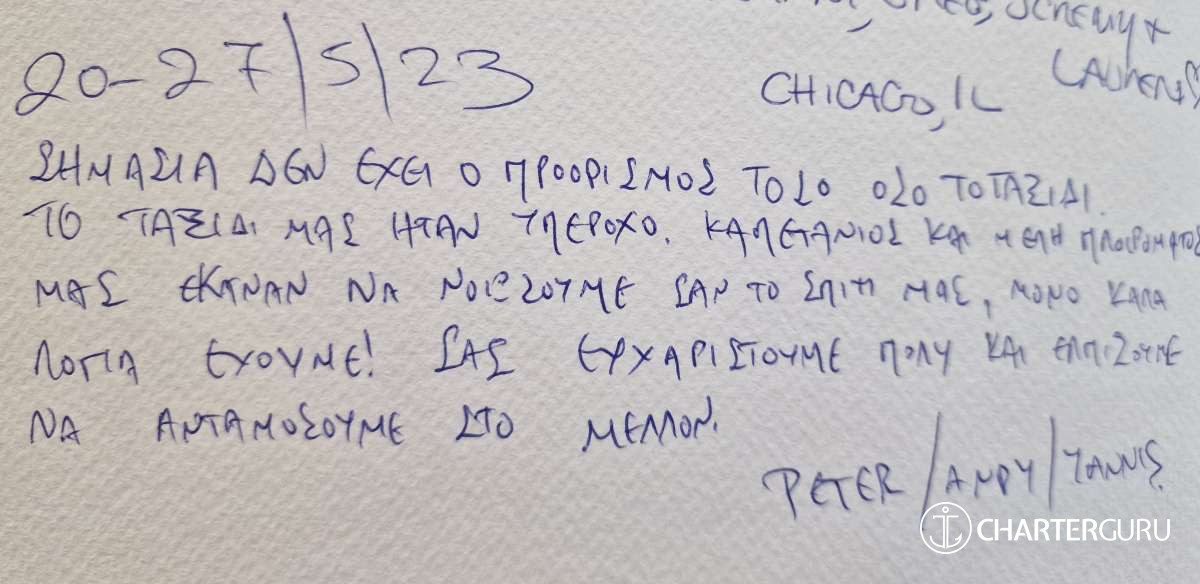 JEREMY +
LAUREN
CHICAGO, IL
20-27/5/23
ΣΗΜΑΣΙΑ ΔΕΝ ΕΧΕΙ Ο ΠΡΟΟΡΙΣΜΟΣ ΤΟΣΟ ΟΣΟ ΤΟ ΤΑΞΙΔΙ.
ΤΟ ΤΑΞΙΔΙ ΜΑΣ ΗΤΑΝ ΥΠΕΡΟΧΟ. ΚΑΠΕΤΑΝΙΟΣ ΚΑΙ ΜΕΛΗ ΠΛΟΙΡΟΜΑΤΟΣ
ΜΑΣ ΕΚΑΝΑΝ ΝΑ ΝΟΙΣΟΥΜΕ ΣΑΝ ΤΟ ΣΠΙΤΙ ΜΑΣ, ΜΟΝΟ ΚΑΛΑ
ΛΟΓΙΑ ΕΧΟΥΜΕ! ΣΑΣ ΕΥΧΑΡΙΣΤΟΥΜΕ ΠΟΛΥ ΚΑΙ ΕΛΠΙΖΟΥΜΕ
ΝΑ ΑΝΤΑΜΟΣΟΥΜΕ ΣΤΟ ΜΕΛΛΟΝ.
PETER / ANDY / YANNIS
CHARTERGURU